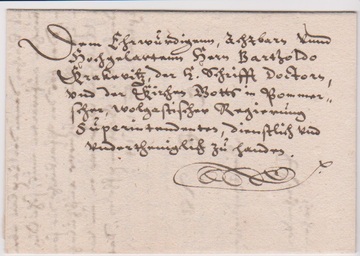 Dem Ehrwürdigenn, Achtbarn vnnd
Hochgelartenn Hern Bartholdo
Krakevitz, der H. Schrifft Doctorn,
vnd der Kirchen Gotts in Pommer-
scher, wolgastischer Regierung
Superintendenten, dienstlich vnd
vndertheniglich zu handen.